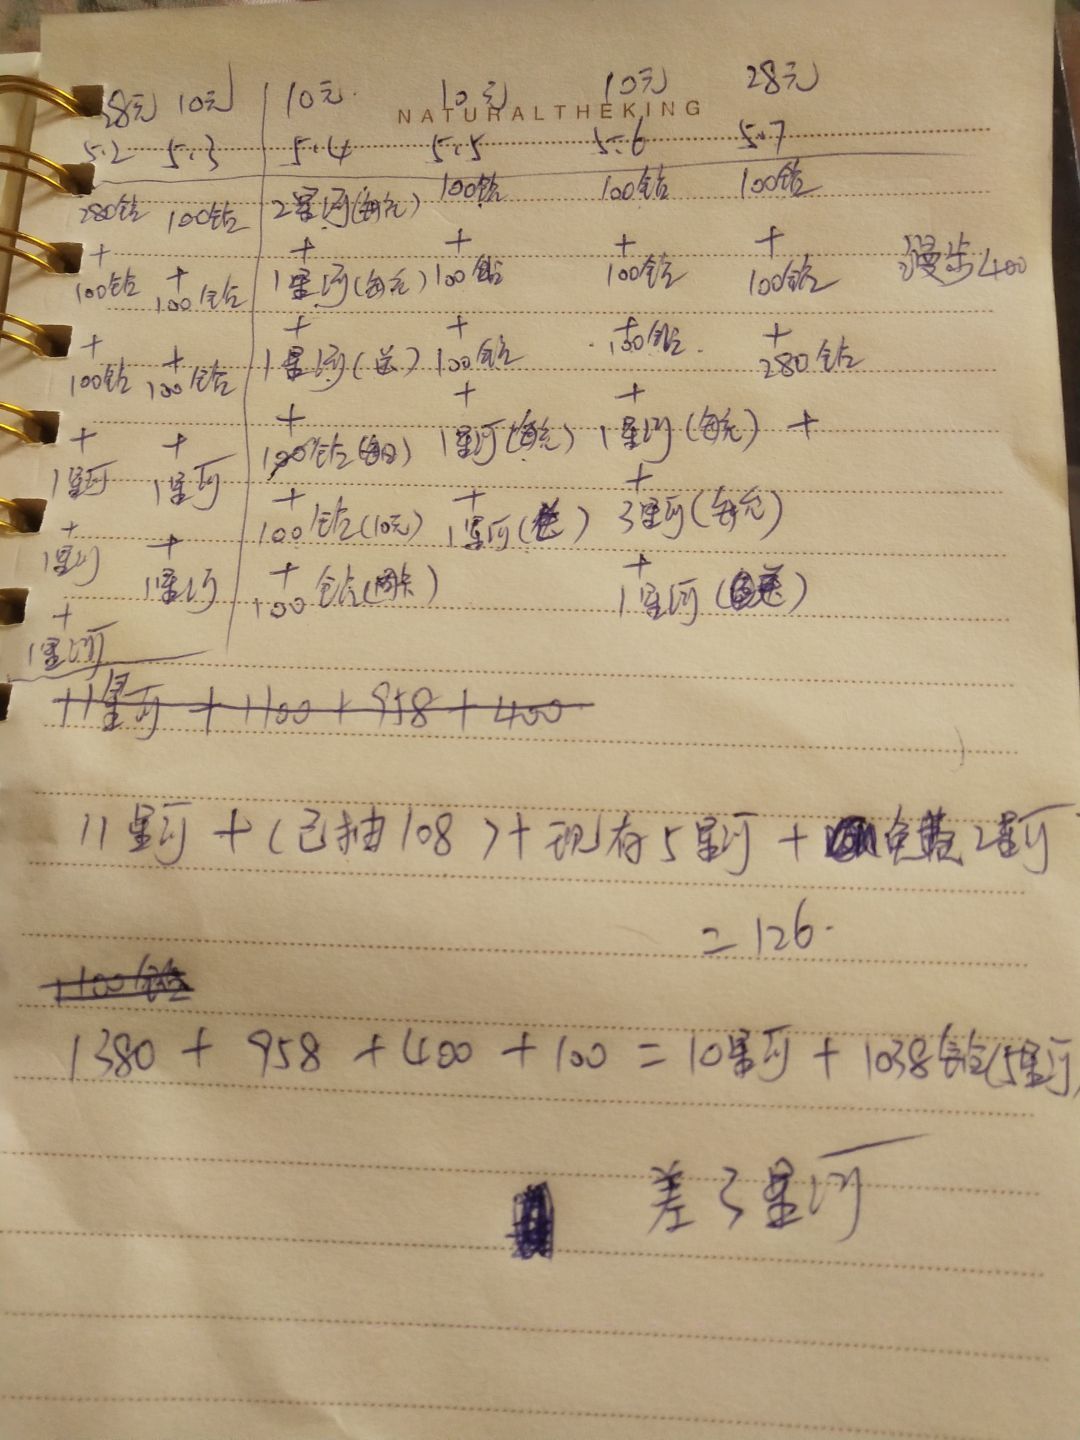 28元 10元 10元. 10元 10元 28元
NATURALTHEKING
5.2 5.3 5.4 5.5 5.6 5.7
280钻 100钻 2星河(每充) 100钻 100钻 100钻
+ + + + + +
100钻 100钻 1星河(每充) 100钻 100钻 100钻 漫步400
+ + + + + +
100钻 100钻 1星河(送) 100钻 100钻 280钻
+ + + + + +
1星河 1星河 100钻(每日) 1星河(每充) 1星河(每充)
+ + + + +
1星河 1星河 100钻(10元) 1星河(送) 3星河(每充)
+ + +
1星河 100钻(周卡) 1星河(送)
+11星河 + 1100 + 958 + 400
11星河 + (已抽108) + 现存5星河 + 免费2星河
= 126.
+100钻
1380 + 958 + 400 + 100 = 10星河 + 1038钻(5星河)
差3星河